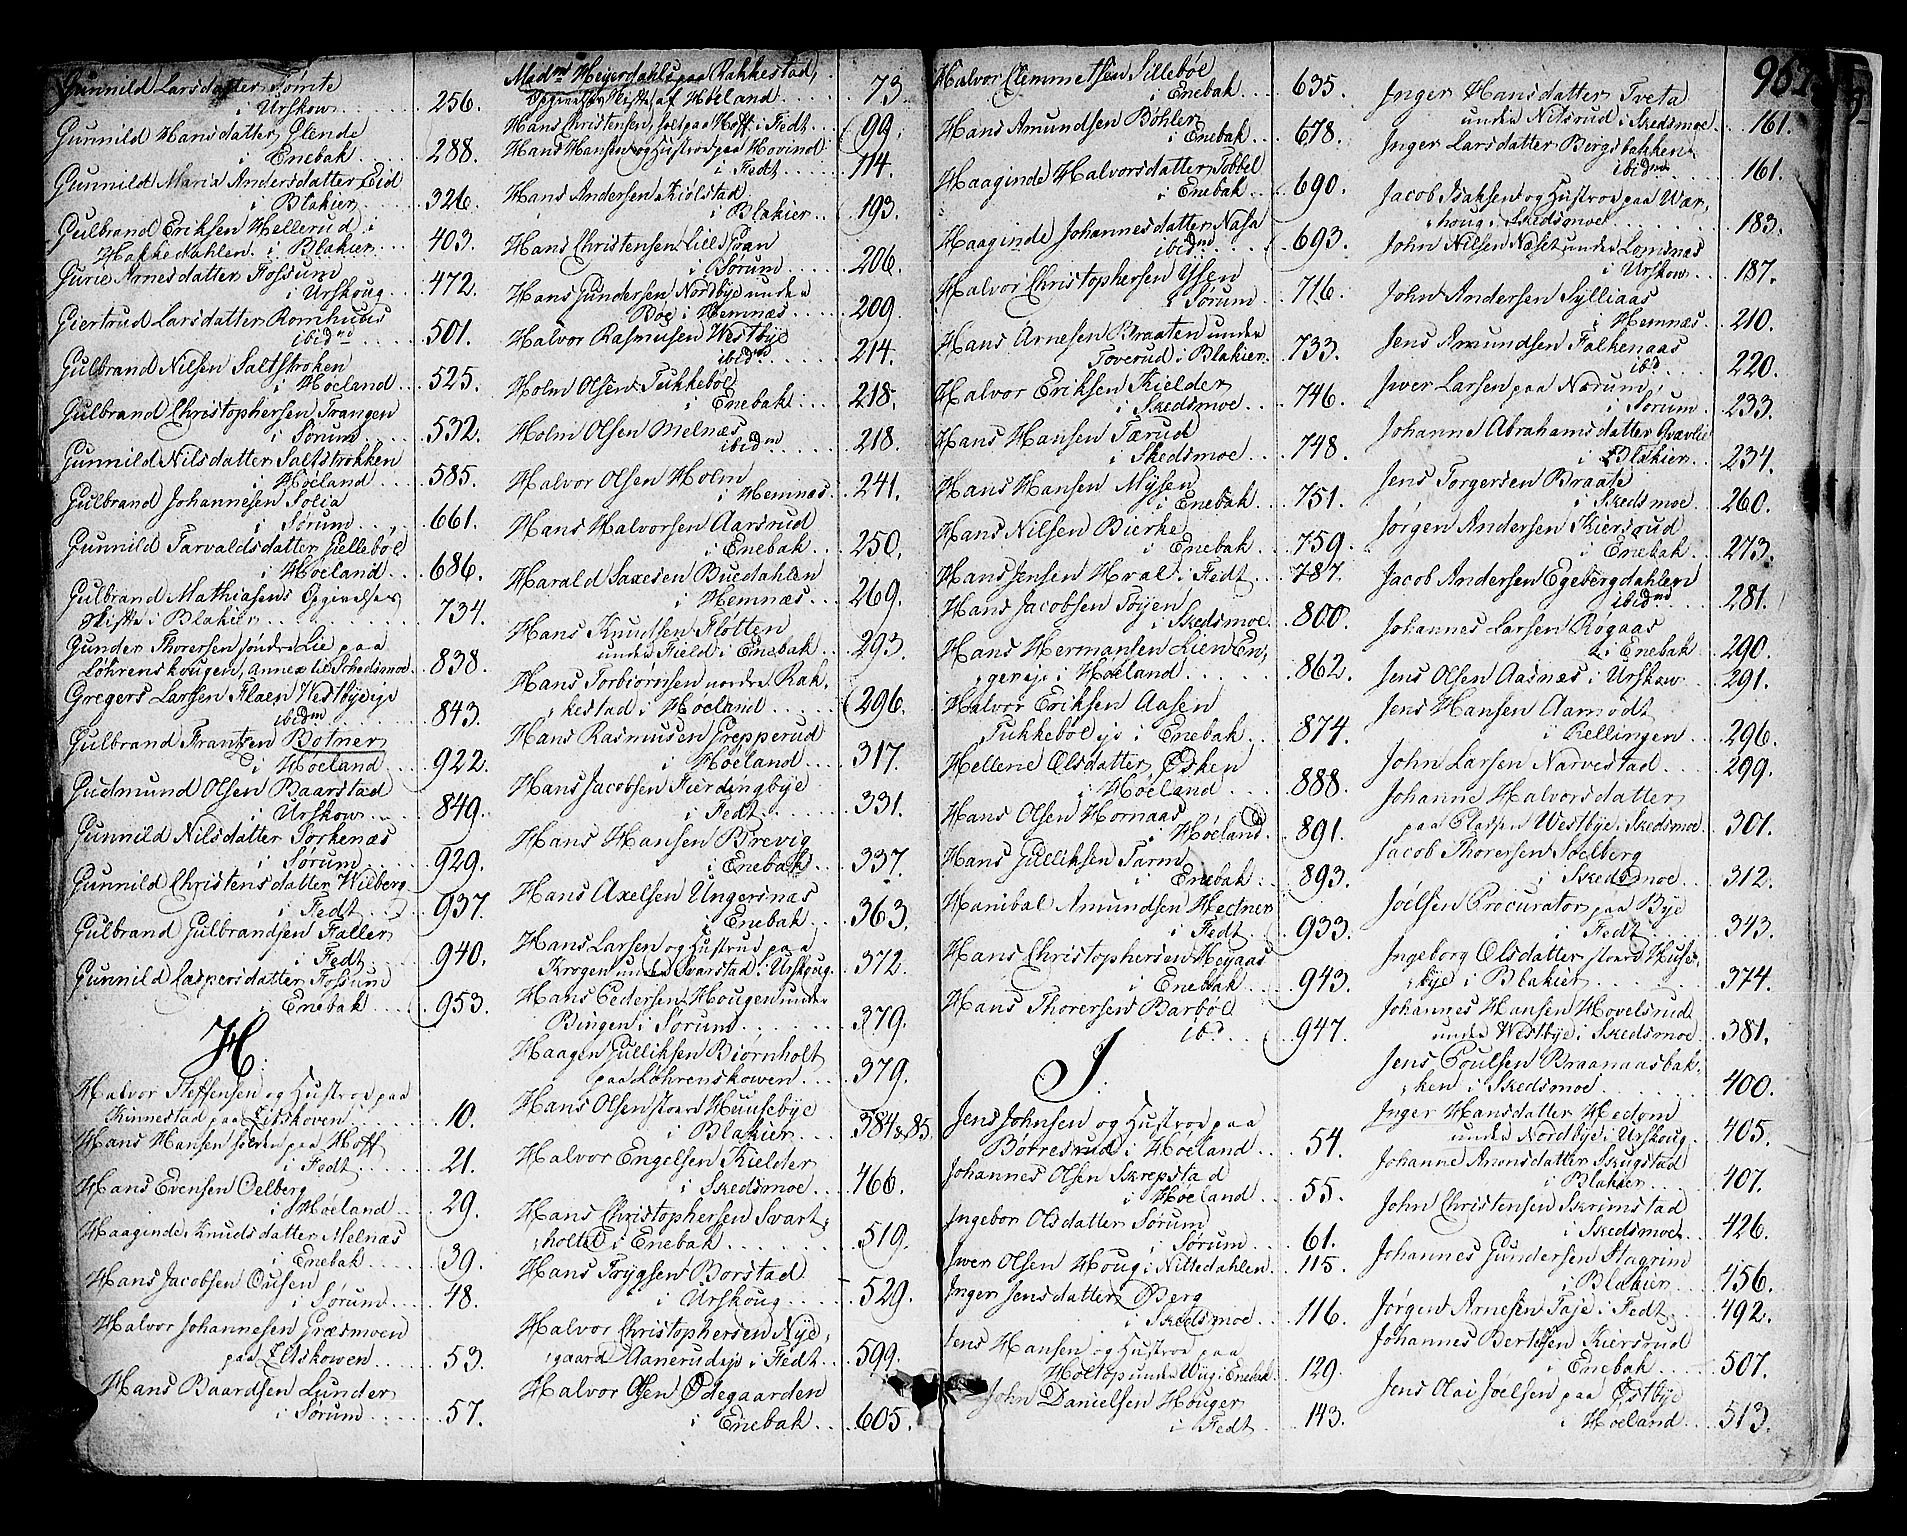 Gunnild Larsdatter Tomte
i Urskow 256.
Gunnild Hansdatter Glende
i Enebak 288.
Gunnild Maria Andersdatter Eid
i Blakier 326.
Gulbrand Eriksen Hellerud i
Hakkedahlen i Blakier 403.
Gurie Arnesdatter Fossum
i Urskoug 472.
Giertrud Larsdatter Romhuus
ibidm 501.
Gulbrand Nilsen Saltstroken
i Høeland 525.
Gulbrand Christophersen Trangen
i Sørum 532.
Gunnild Nilsdatter Saltstrokken
i Høeland 585.
Gulbrand Johannesen Solia
i Sørum 661.
Gunnild Tarvaldsdatter Gillebøl
i Høeland 686.
Gulbrand Mathiasens Opgivelses
Skifte i Blakier 734.
Gunder Thoresen søndre Lie paa
Løhrenskougen, annex til Schedsmoe 838.
Gregers Larsen Flaen Westbyeeje
ibidm 843.
Gulbrand Frantsen Botner
i Høeland 922.
Gudmund Olsen Baarstad
i Urskow 849.
Gunnild Nilsdatter Torkenæs
i Sørum 929.
Gunnild Christensdatter Wilberg
i Fedt 937.
Gulbrand Gulbrandsen Faller
i Fedt 940.
Gunnild Caspersdatter Fossum
i Enebak 953.
H.
Halvor Steffensen og Hustroe paa
Kinnestad paa Eidskoven 10.
Hans Hansen søndre paa Hoff
i Fedt 21.
Hans Evensen Oelberg
i Høeland 29.
Haaginde Knudsdatter Melnæs
i Enebak 39.
Hans Jacobsen Ousen
i Sørum 48.
Halvor Johannesen Græsmoen
paa Eidskowen 53.
Hans Baardsen Lunder
i Sørum 57.
Madme Heyerdahls paa Rakkestad,
Opgivelses Skifte af Høeland 73.
Hans Christensen, solt paa Hoff i Fedt 99.
Hans Hansen og Hustroe paa Hovind
i Fedt 114.
Hans Andersen Kiølstad
i Blakier 193.
Hans Christensen Lille Gran
i Sørum 206.
Hans Gundersen Nordbye under
Bøe i Hemnæs 209.
Halvor Rasmusen Westbye
ibidm 214.
Holm Olsen Tukkebøl
i Enebak 218.
Holm Olsen Melnæs
ibidm 218.
Halvor Olsen Holm
i Hemnæs 241.
Hans Halvorsen Aarsrud
i Enebak 250.
Harald Saxesen Buedahlen
i Hemnæs 269.
Hans Knudsen Fløtten
under Field i Enebak 293.
Hans Torbiørnsen nordre Rak,
kestad i Høeland 296.
Hans Rasmusen Grepperud
i Høeland 317.
Hans Jacobsen Fierdingbye
i Fedt 331.
Hans Hansen Brevig
i Enebak 337.
Hans Axelsen Ungersnæs
i Enebak 363.
Hans Larsen og Hustrue paa
Krogen under Svarstad i Urskoug 372.
Hans Pedersen Hougen under
Bingen i Sørum 379.
Haagen Gulliksen Biørnholt
paa Løhrenskowen 379.
Hans Olsen stoere Huusebye
i Blakier 384 & 85.
Halvor Engelsen Kielder
i Skedsmoe 466.
Hans Christophersen Svart,
holtet i Enebak 519.
Hans Trygsen Borstad
i Urskoug 529.
Halvor Christophersen Nye,
gaard Aanerudeje i Fedt 599.
Halvor Olsen Ødegaarden
i Enebak 605.
Halvor Clemmetsen Sillebøl
i Enebak 635.
Hans Amundsen Bøhler
i Enebak 678.
Haaginde Halvorsdatter Tobbel
i Enebak 690.
Haaginde Johannesdatter Nasa
ibidm 693.
Halvor Christophersen Ysen
i Sørum 716.
Hans Arnesen Braaten under
Toverud i Blakier 733.
Halvor Eriksen Kielder
i Skedsmoe 746.
Hans Hansen Tærud
i Skedsmoe 748.
Hans Hansen Mysen
i Enebak 751.
Hans Nilsen Bierke
i Enebak 759.
Hans Jensen Hval i Fedt 787.
Hans Jacobsen Tøyen
i Skedsmoe 800.
Hans Hermansen Lien En,
gereje i Høeland 862.
Halvor Eriksen Aasen
Tukkebøleje i Enebak 874.
Hellene Olsdatter Esken
i Høeland 888.
Hans Olsen Hornaas
i Høeland 891.
Hans Gulliksen Tarm
i Enebak 893.
Hanibal Amundsen Hectner
i Fedt 933.
Hans Christophersen Heyaas
i Enebak 943.
Hans Thorersen Barbøl
ibd 947.
J.
Jens Johnsen og Hustroe paa
Bøtresrud i Høeland 54.
Johannes Olsen Skrepstad
i Høeland 55.
Ingebor Olsdatter Sørum
i Sørum 61.
Iwer Olsen Houg i Nittedahlen 115.
Inger Jensdatter Berg
i Skedsmoe 116.
Jens Hansen og Hustroe paa
Holtop under Wiig i Enebak 129.
John Danielsen Houger
i Fedt 143.
962.
Inger Hansdatter Tveta
under Nilsrud i Skedsmoe 161.
Inger Larsdatter Bergsbakken
ibidm 161.
Jacob Isaksen og Hustroe paa War,
houg i Skedsmoe 183.
John Nilsen Næset under Lomsnæs
i Urskow 187.
John Andersen Sylliaas
i Hemnæs 210.
Jens Amundsen Falkenaas
ibd 220.
Iwer Larsen paa Nærum,
i Sørum 233.
Johanne Abrahamsdatter Gravlie
i Blakier 234.
Jens Torgersen Braate
i Skedsmoe 260.
Jørgen Andersen Kiersrud
i Enebak 273.
Jacob Andersen Egebergdahlen
ibidm 281.
Johannes Larsen Rogaas
i Enebak 290.
Jens Olsen Aasnæs i Urskow 291.
Jens Hansen Aamodt
i Rellingen 296.
John Larsen Narvestad 299.
Johanne Halvorsdatter
paa Pladsen Westbye i Skedsmoe 301.
Jacob Thorersen Soelberg
i Skedsmoe 312.
Joelsen Procurator paa Bye
i Fedt 343.
Ingeborg Olsdatter stoere Huse,
bye i Blakier 374.
Johannes Hansen Hovelsrud
under Westbye i Skedsmoe 381.
Jens Poulsen Braanaasbak,
ken i Skedsmoe 400.
Inger Hansdatter Hedom
under Nordbye i Urskoug 405.
Johanne Amonsdatter Skugstad
i Blakier 407.
John Christensen Skrimstad
i Skedsmoe 426.
Johannes Gundersen Stagrim
i Blakier 456.
Jørgen Arnesen Taje i Fedt 492.
Johannes Bertelsen Kiersrud
i Enebak 507.
Jens Olai Joelsen paa Østbye
i Høeland 513.